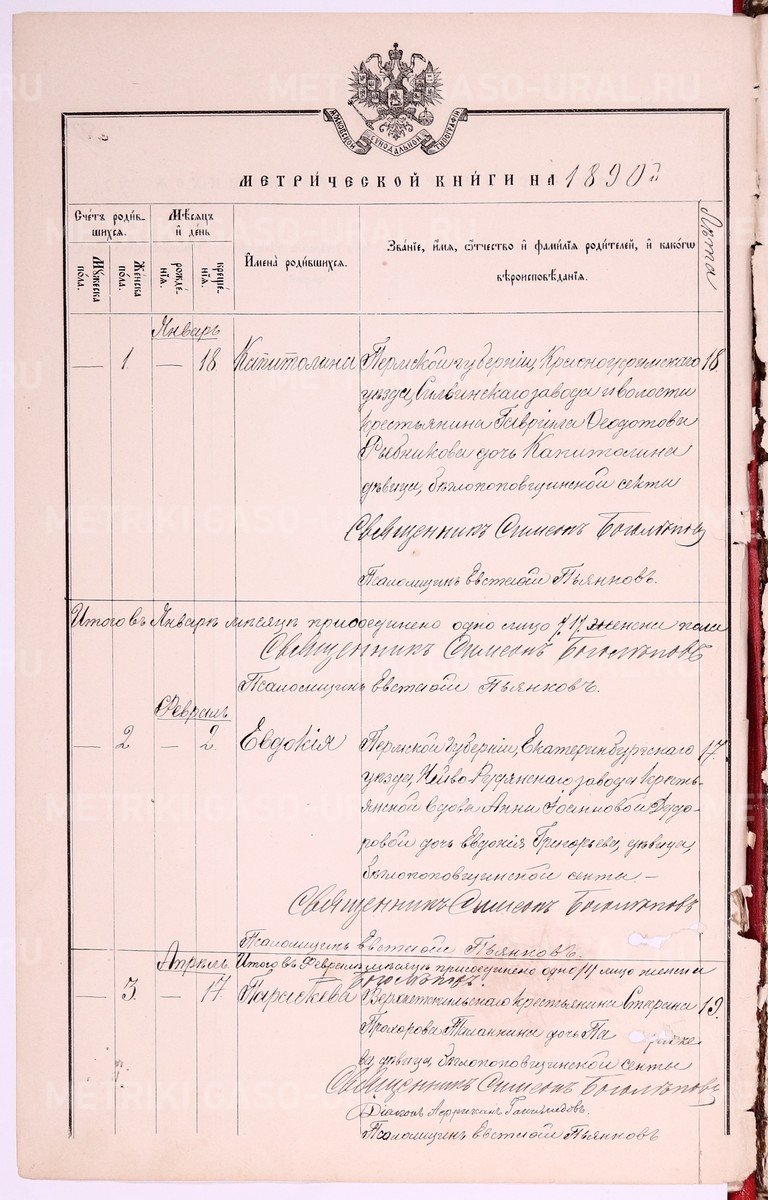 МОСКОВСКОЙ СѴНОДАЛЬНОЙ ТИПОГРАФІИ
МЕТРИ́ЧЕСКОЙ КНИ́ГИ НА 1890й
Сче́тъ роди́вшихся.
Мѣ́сяцъ и҆ де́нь
И҆мена̀ роди́вшихся.
Зва́ніе, и҆́мя, ѻ҆́тчество и҆ фамилія роди́телей, и҆ како́гѡ вѣроисповѣ́данія.
Лѣта
Мꙋжеска по́ла.
Же́нска по́ла.
рожде́нія.
креще́нія.
Январь
— 1. — 18 Капитолина Пермской губерніи, Красноуфимскаго 18
уѣзда, Сылвинскаго завода и волости
крестьянина Гавріила Ѳеодотова
Рыбникова дочь Капитолина
дѣвица, бѣглопоповщинской секты
Священникъ Симеонъ Боголѣповъ
Псаломщикъ Евстафій Пьянковъ.
Итого въ Январѣ мѣсяцѣ присоединено одно лицо женска пола
Священникъ Симеонъ Боголѣповъ
Псаломщикъ Евстафій Пьянковъ.
Февраль
— 2 — 2 Евдокія Пермской губерніи, Екатеринбургскаго 17
уѣзда, Нейво-Рудянскаго завода, кресть-
янской вдовы Анны Іоанновой
дочь Евдокія Григорьева, дѣвица,
бѣглопоповщинской секты. —
Священникъ Симеонъ Боголѣповъ
Псаломщикъ Евстафій Пьянковъ.
Апрѣль Итого въ Февралѣ мѣсяцѣ присоединено одно /1/ лицо женска
Боголѣповъ.
— 3. — 17 Параскева крестьянина 19.
Прохорова дочь Па
ва, дѣвица, бѣглопоповщинской секты
Священникъ Симеонъ Боголѣповъ
Діаконъ
Псаломщикъ Евстафій Пьянковъ
METRIKI.GASO-URAL.RU